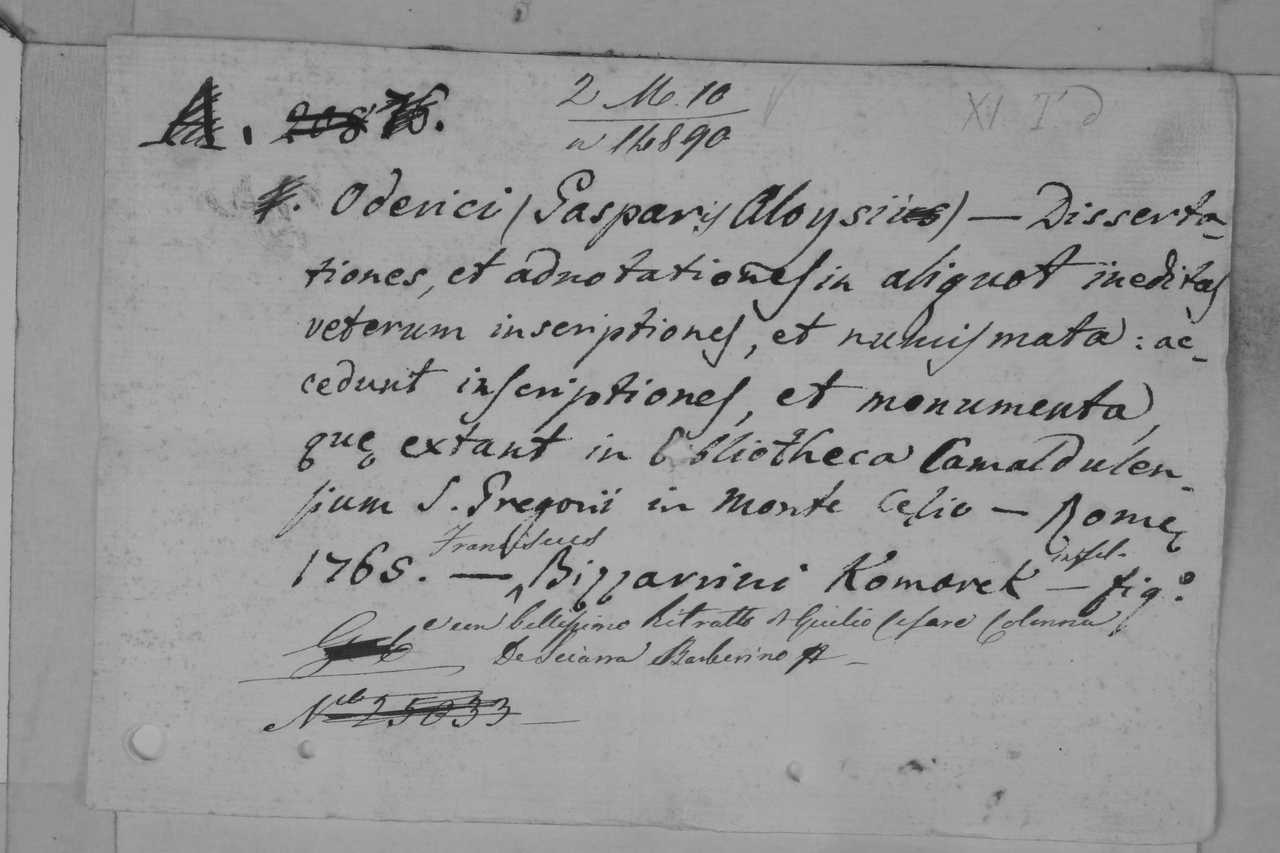 A. 20876.
2 M. 10
n 14890
XI T d
4. Oderici (Gasparij Aloysii) — Disserta-
tiones, et adnotationes in aliquot ineditas
veterum inscriptiones, et numismata: ac-
cedunt inscriptiones, et monumenta,
quę extant in bibliotheca Camaldulen-
sium S. Gregorii in Monte Celio — Romę
1765. — Franciscus Bizzarrini Komarek — fig.º
e un bellissimo Ritratto di Giulio Cesare Colonna
De Sciarra Barberino
N.º 25033